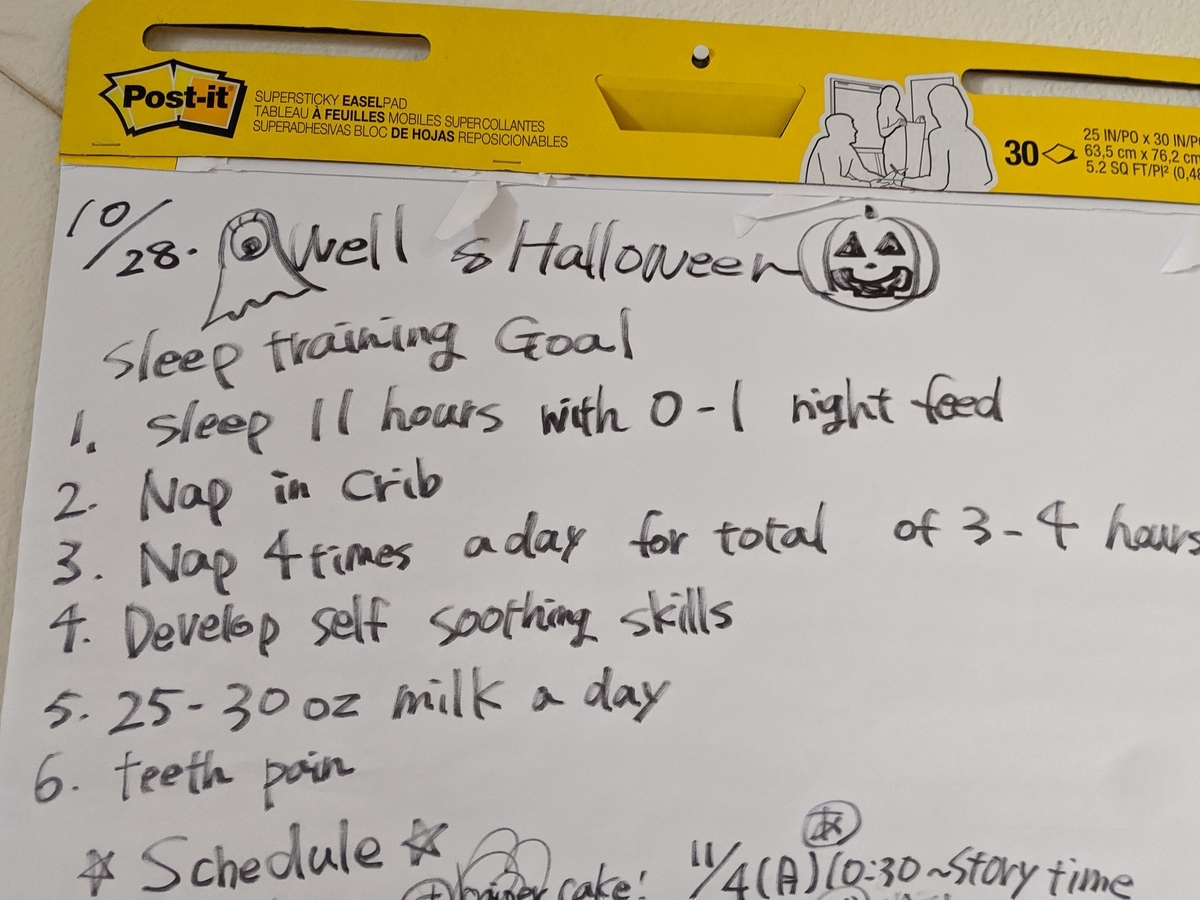 Post-it
SUPERSTICKY EASELPAD
TABLEAU À FEUILLES MOBILES SUPERCOLLANTES
SUPERADHESIVAS BLOC DE HOJAS REPOSICIONABLES
30
25 IN/PO x 30 IN/P
63,5 cm x 76,2 cm
5.2 SQ FT/PI² (0,48
10/28. Well & Halloween
Sleep training Goal
1. sleep 11 hours with 0-1 night feed
2. Nap in Crib
3. Nap 4 times a day for total of 3-4 hours
4. Develop self soothing skills
5. 25-30 oz milk a day
6. teeth pain
☆ Schedule ☆
cake! 11/4 10:30~Story time